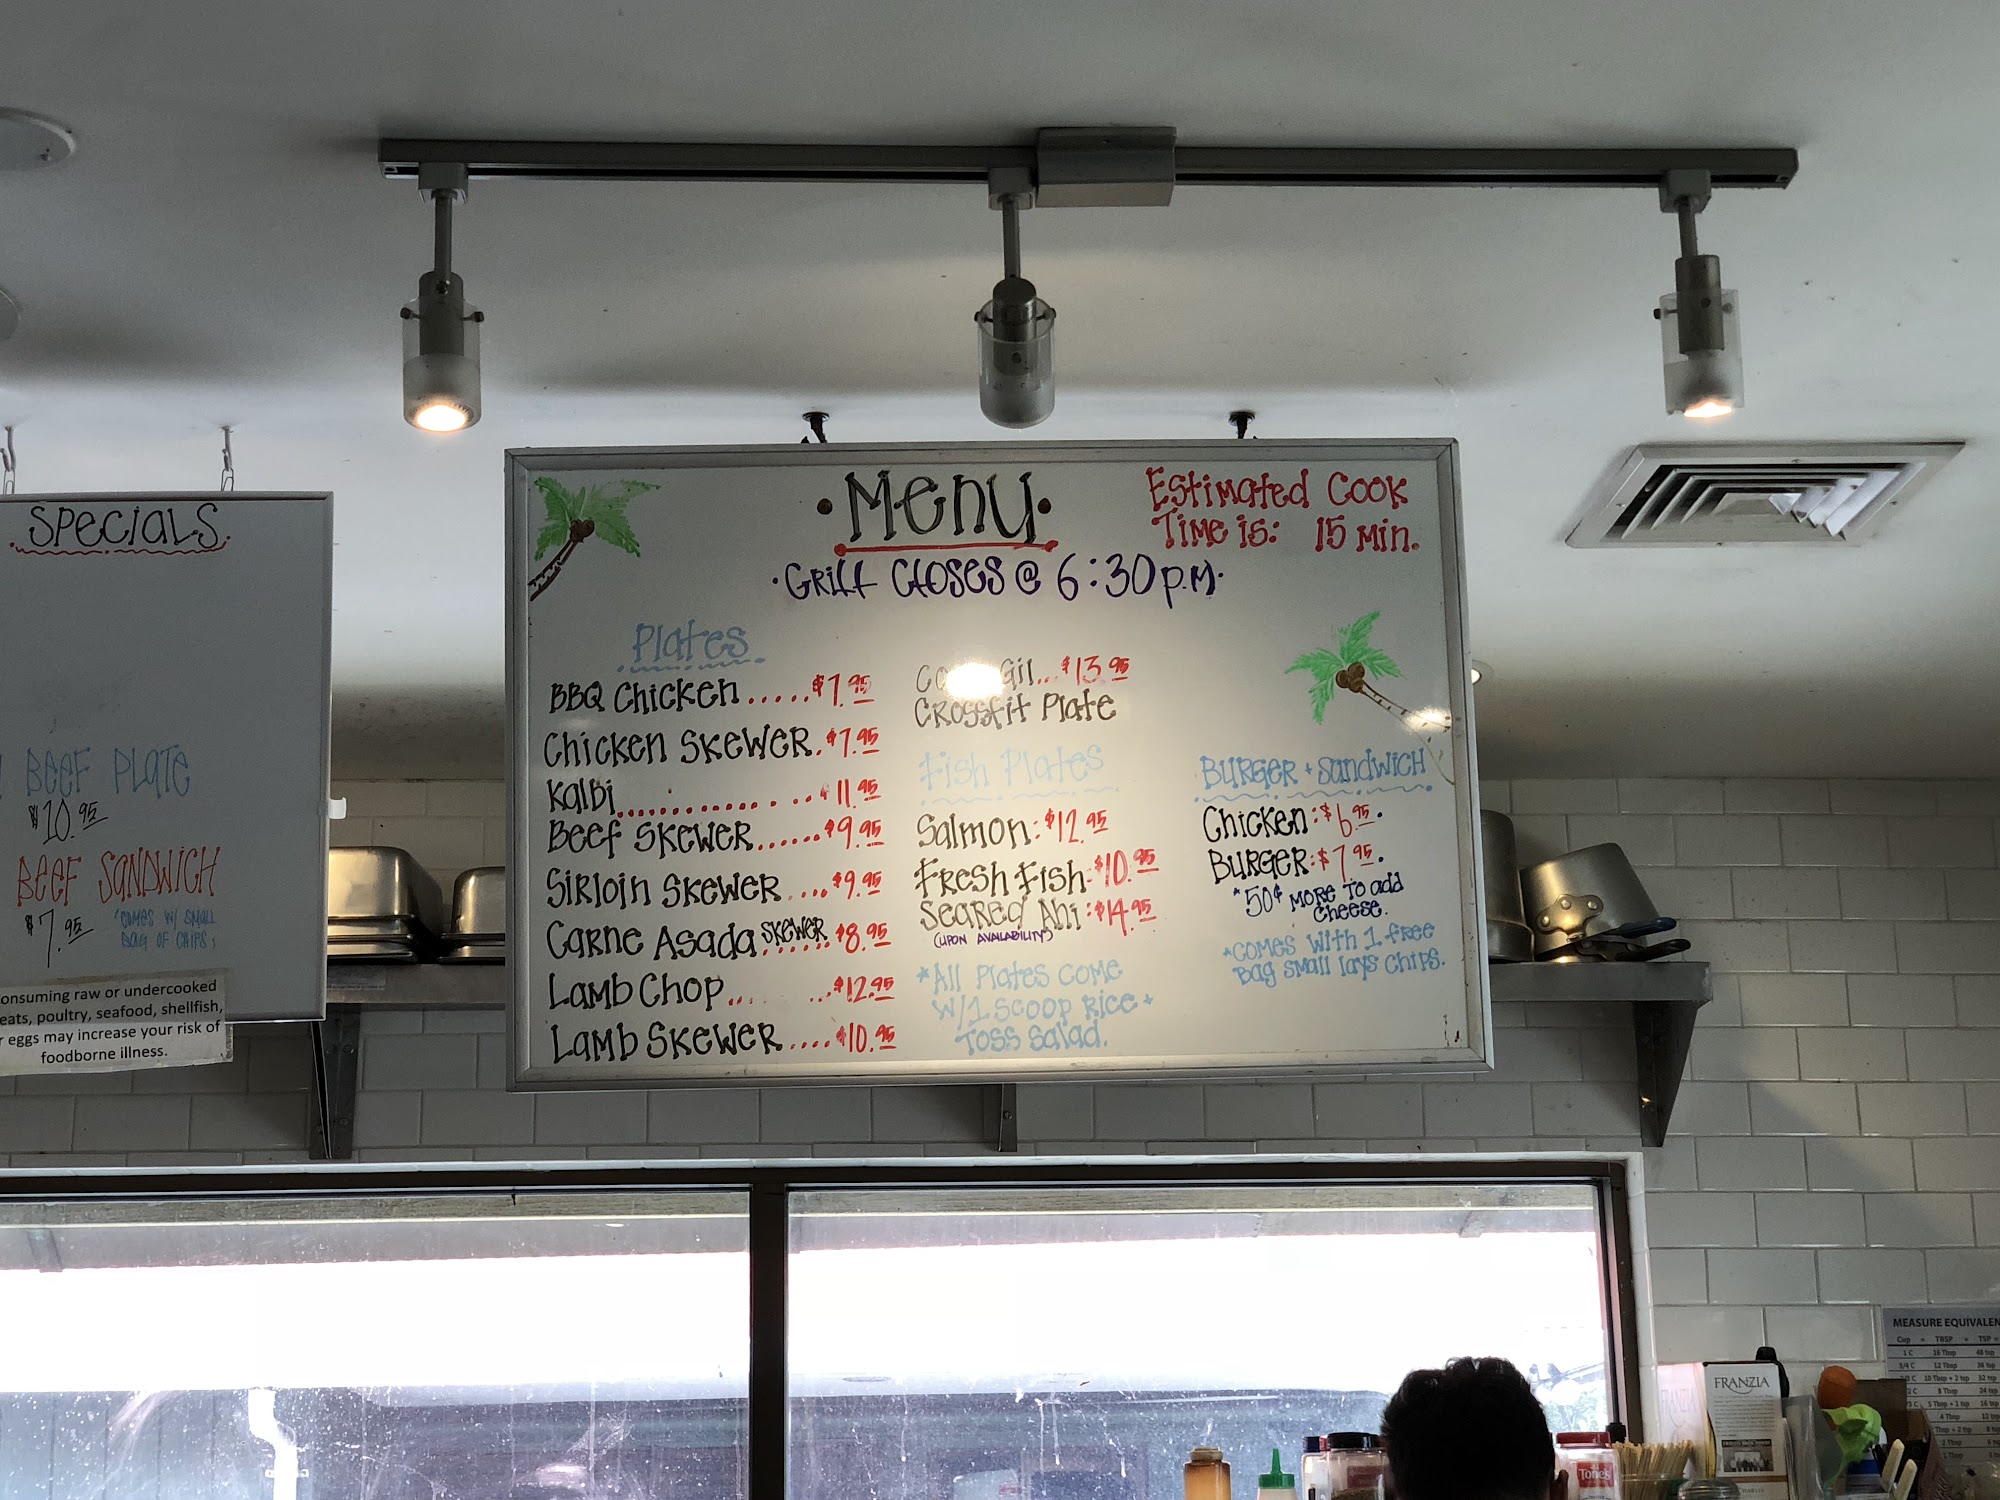 SPECIALS
BEEF PLATE
$10.95
BEEF SANDWICH
$7.95
*COMES W/ SMALL
BAG OF CHIPS.
onsuming raw or undercooked
eats, poultry, seafood, shellfish,
r eggs may increase your risk of
foodborne illness.
•Menu•
Estimated Cook
Time is: 15 Min.
•Grill Closes @ 6:30 p.m•
Plates
BBQ Chicken.....$7.95
Chicken Skewer.$7.95
Kalbi...............$11.95
Beef Skewer......$9.95
Sirloin Skewer....$9.95
Carne Asada Skewer......$8.95
Lamb Chop.......$12.95
Lamb Skewer....$10.95
Gil...$13.95
Crossfit Plate
Fish Plates
Salmon:$12.95
Fresh Fish:$10.95
Seared Ahi:$14.95
(UPON AVAILABILITY)
*All Plates Come
W/1 Scoop Rice +
Toss Salad.
Burger + Sandwich
Chicken:$6.95.
Burger:$7.95.
*50¢ More to add
Cheese.
*Comes with 1 free
Bag small lays chips.
MEASURE EQUIVALEN
Cup = TBSP = TSP =
1 C 16 Tbsp 48 tsp
3/4 C 12 Tbsp 36 tsp
10 Tbsp + 2 tsp 32 tsp
8 Tbsp 24 tsp
5 Tbsp + 1 tsp 16 tsp
4 Tbsp 12
FRANZIA
Tone's